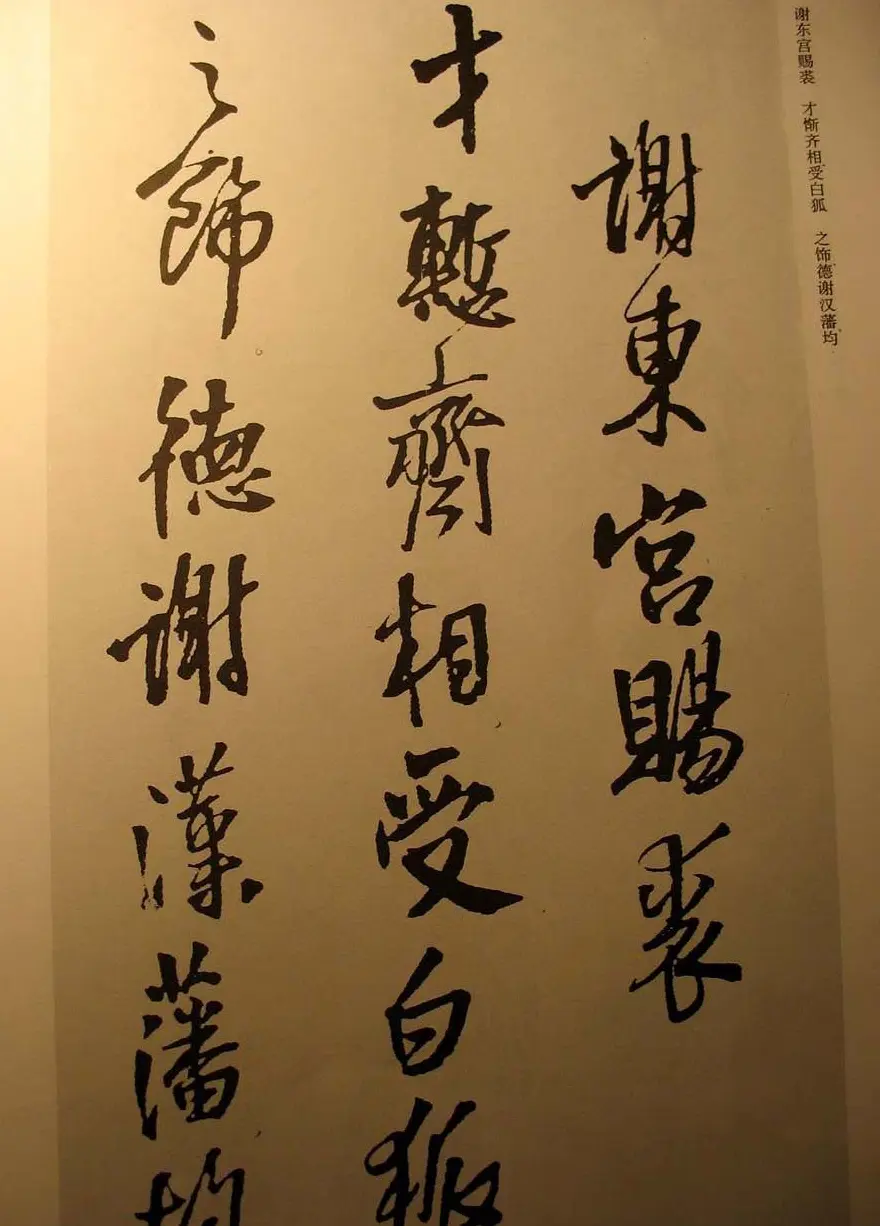 谢东宫赐裘　才惭齐相受白狐　之饰德谢汉藩均
謝東宮賜裘
才慙齊相受白狐
之飾德謝漢藩均